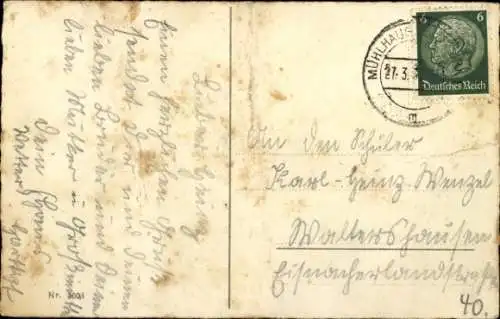 Lieber Heinz
Einen herzlichen Gruß
sendet Dir und Deinen
lieben Bruder und Deine
lieben Mutter u. Großmutter
Dein Freund
Nr.
MÜHLHAUS
27.3.3
m
6 6
Deutsches Reich
An den Schüler
Karl-Heinz Wenzel
Waltershausen
Eisenacherlandstraße
40.